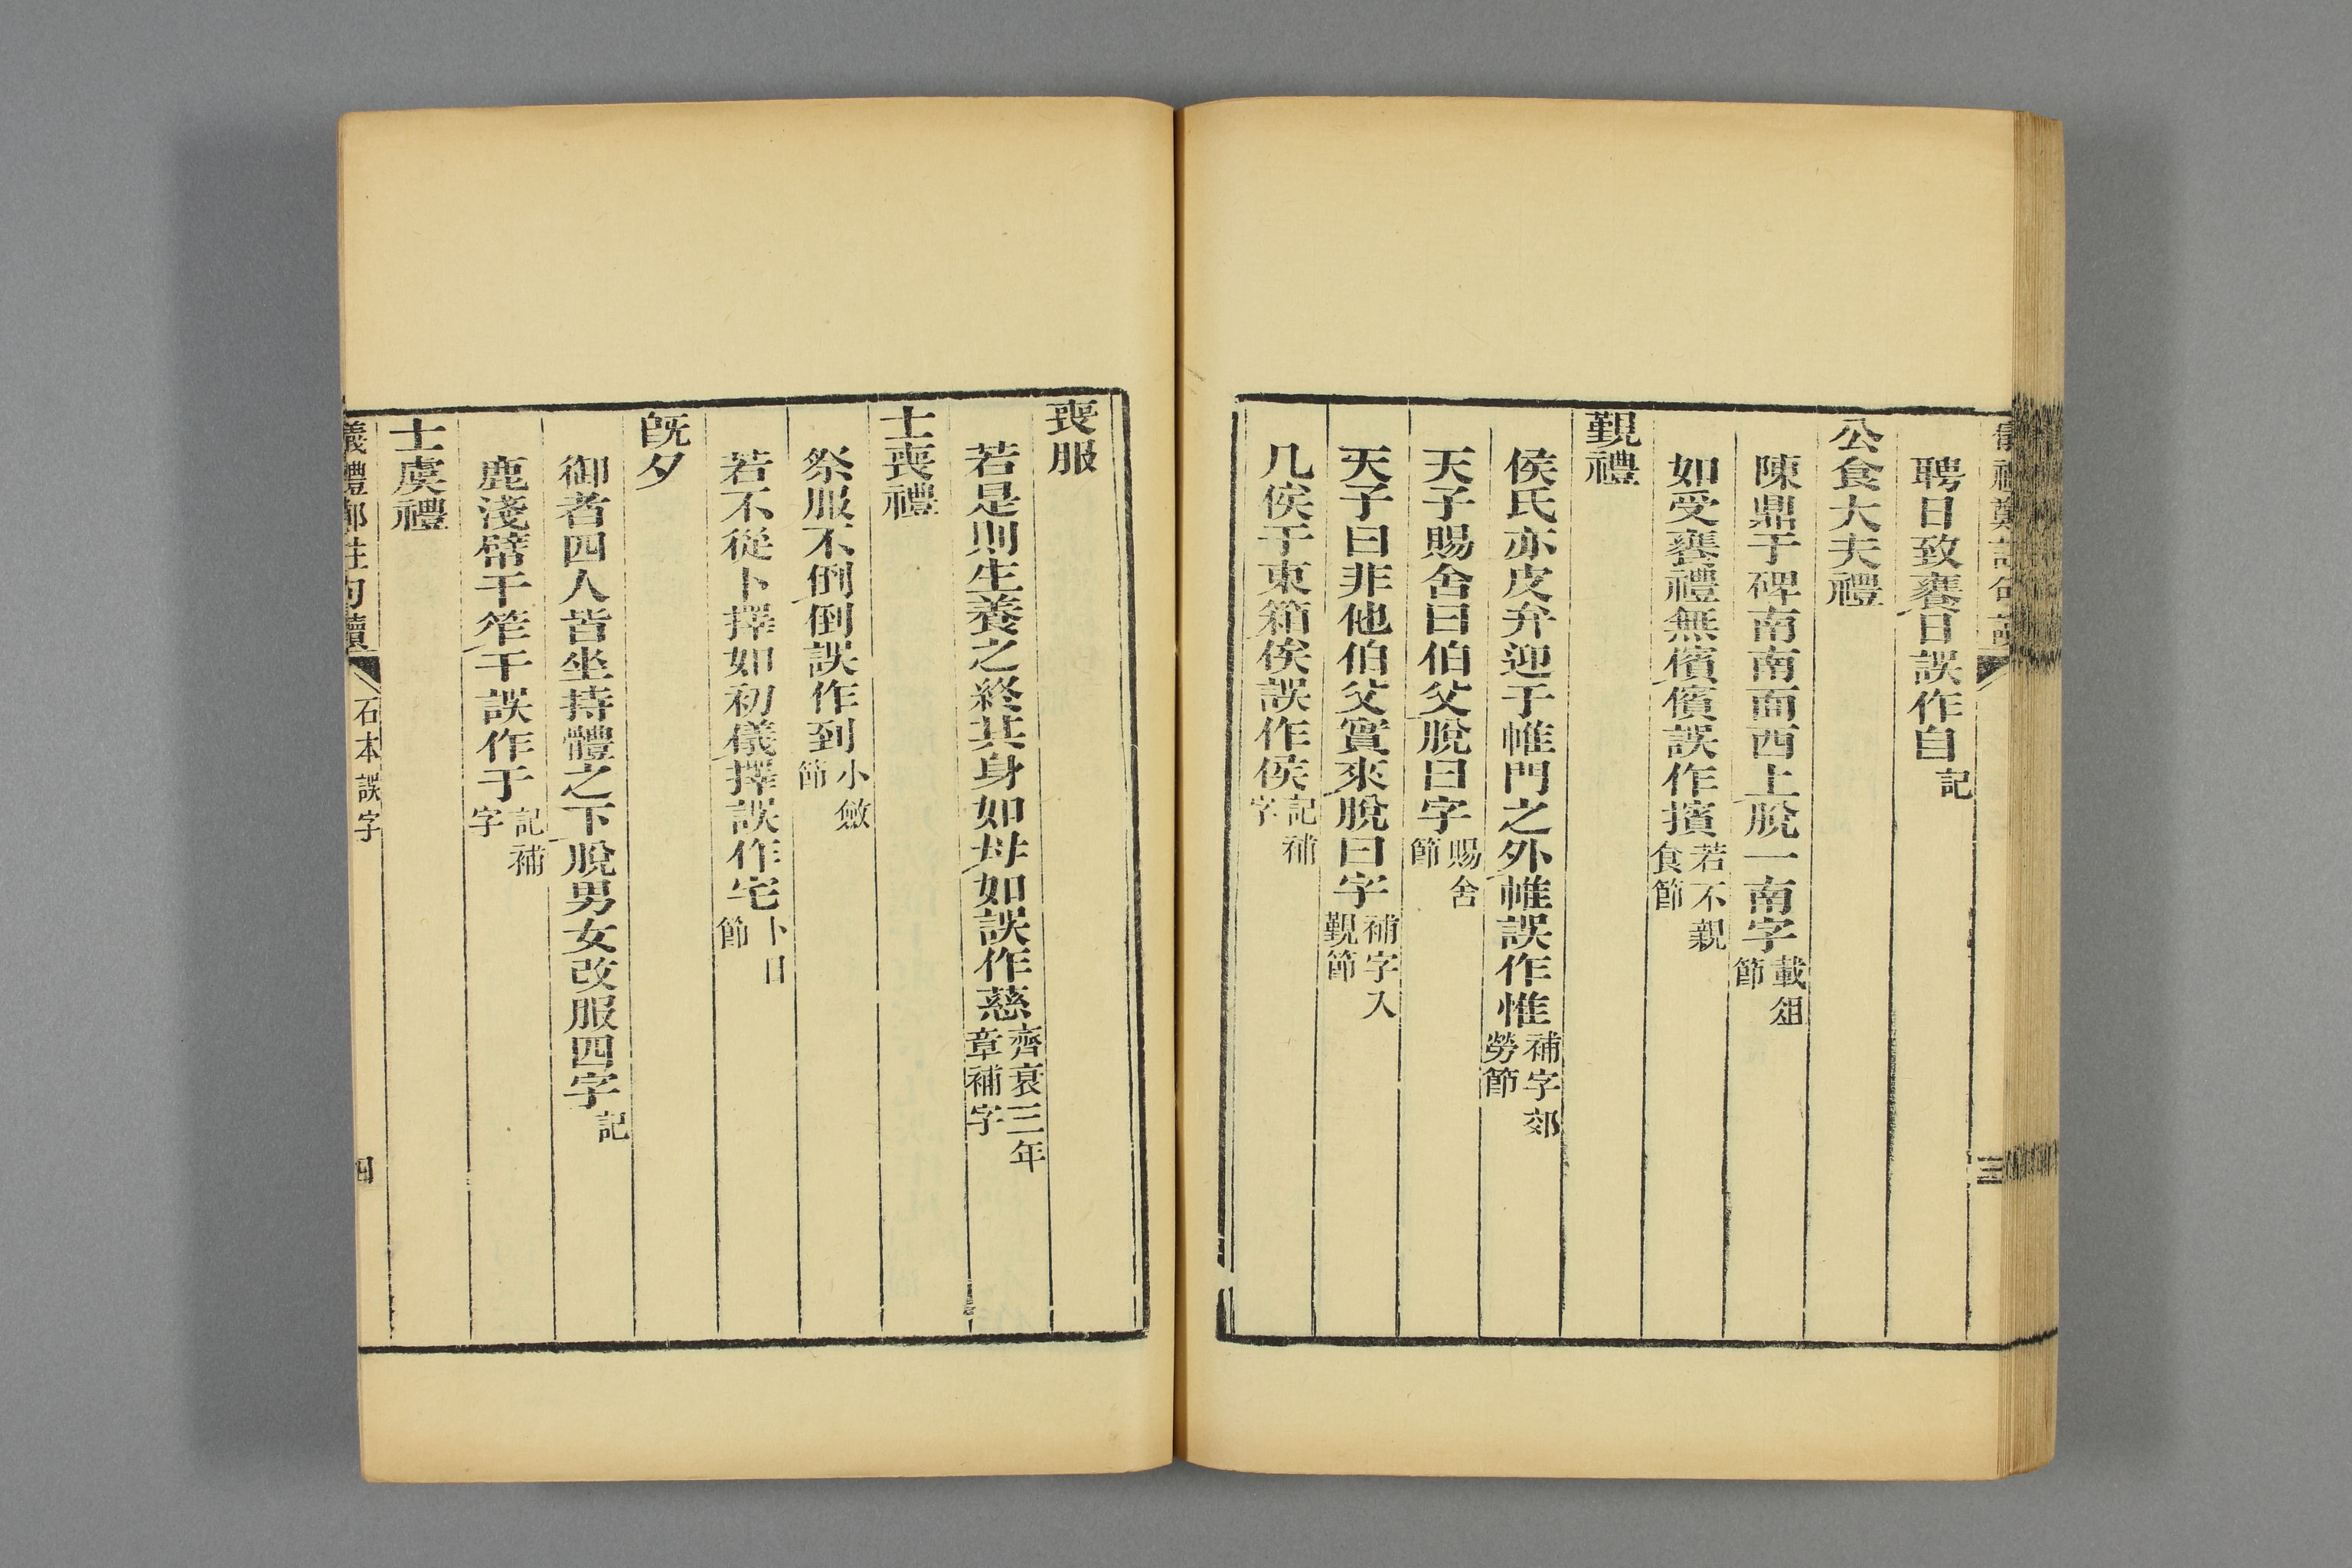 聘日致饔日誤作自記
公食大夫禮
陳鼎于碑南南面西上脫一南字載俎節
如受饔禮無儐儐誤作擯若不親食節
覲禮
侯氏亦皮弁迎于帷門之外帷誤作惟補字郊勞節
天子賜舍曰伯父脫曰字賜舍節
天子曰非他伯父實來脫曰字補字入覲節
几俟于東箱俟誤作侯記補字
三
喪服
若是則生養之終其身如母如誤作慈齊衰三年章補字
士喪禮
祭服不倒倒誤作到小斂節
若不從卜擇如初儀擇誤作宅卜日節
旣夕
御者四人皆坐持體之下脫男女改服四字記
鹿淺幦干笮干誤作于記補字
士虞禮
儀禮鄭註句讀 石本誤字 四